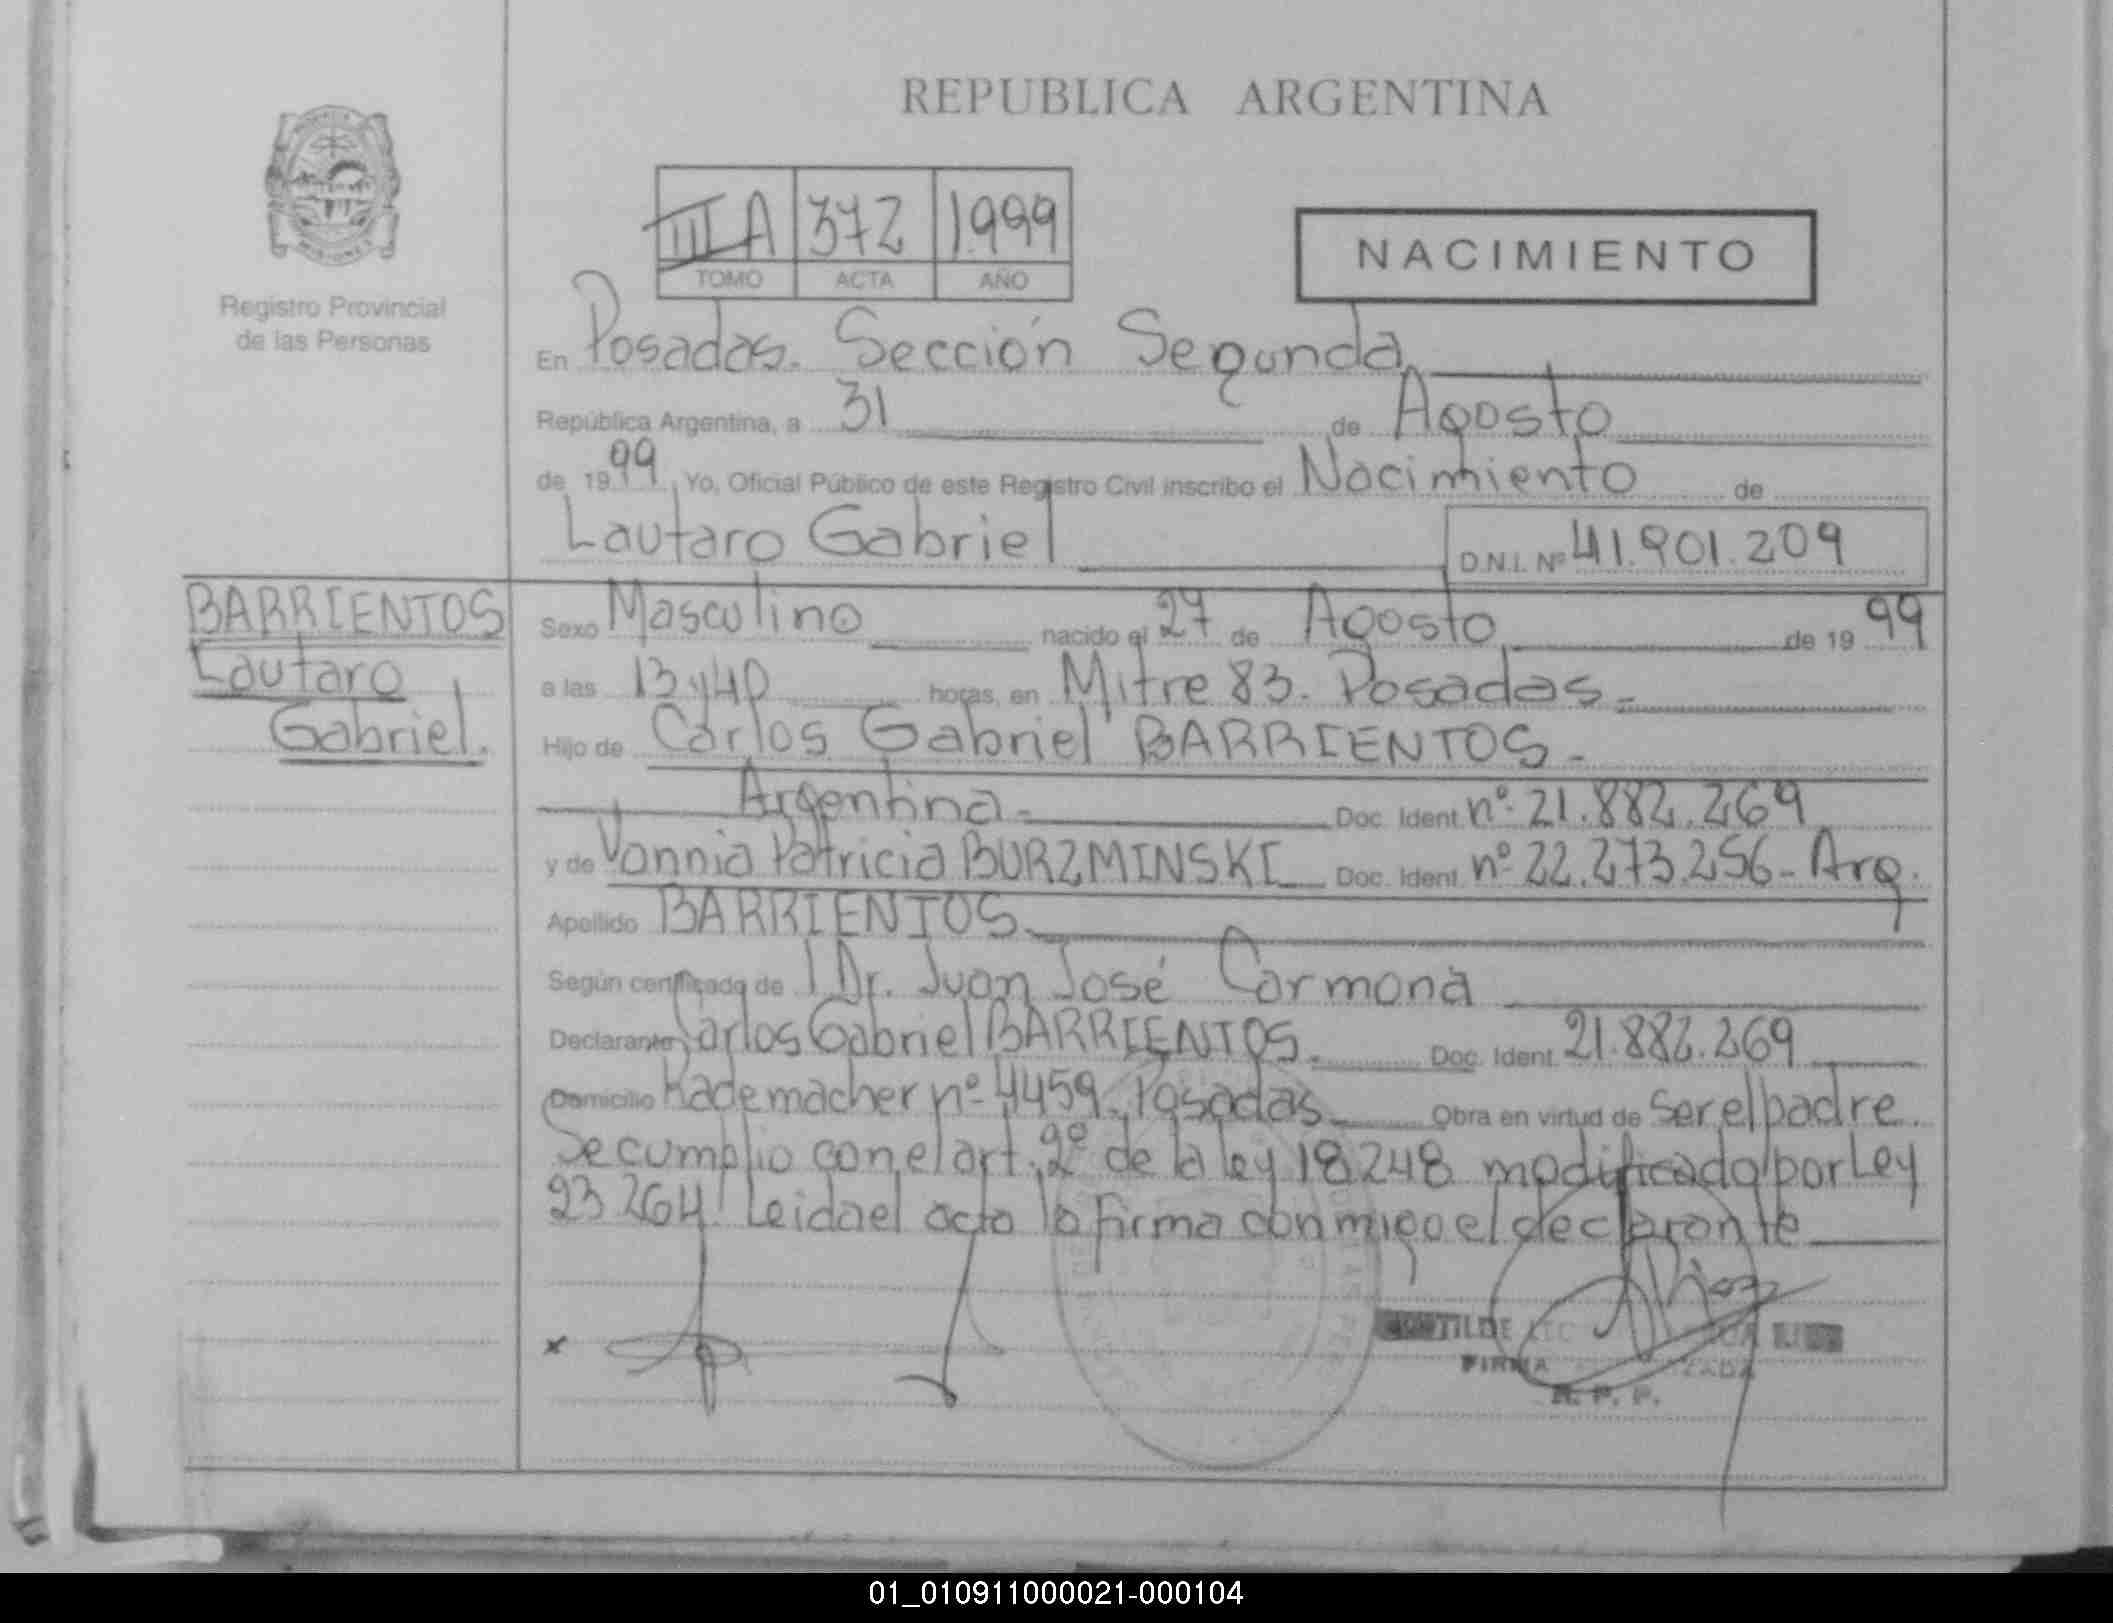 REPUBLICA ARGENTINA
Registro Provincial
de las Personas
III A 372 1.999
TOMO ACTA AÑO
NACIMIENTO
En Posadas. Sección Segunda
República Argentina, a 31 de Agosto
de 1999, Yo, Oficial Público de este Registro Civil inscribo el Nacimiento de
Lautaro Gabriel D.N.I. Nº 41.901.209
BARRIENTOS
Lautaro
Gabriel.
Sexo Masculino nacido el 27 de Agosto de 1999
a las 13 y 40 horas, en Mitre 83. Posadas.-
Hijo de Carlos Gabriel BARRIENTOS.-
Argentina.- Doc. Ident. nº 21.882.269
y de Vannia Patricia BURZMINSKI Doc. Ident. nº 22.273.256- Arg.
Apellido BARRIENTOS.
Según certificado de Dr. Juan José Carmona
Declarante Carlos Gabriel BARRIENTOS. Doc. Ident. 21.882.269
Domicilio Rademacher nº 4459. Posadas. Obra en virtud de ser el padre.
Se cumplio con el art. 2º de la ley 18248 modificado por Ley
23.264. Leida el acta la firma conmigo el declarante
x
FIRMA
R. P. P.
01_010911000021-000104